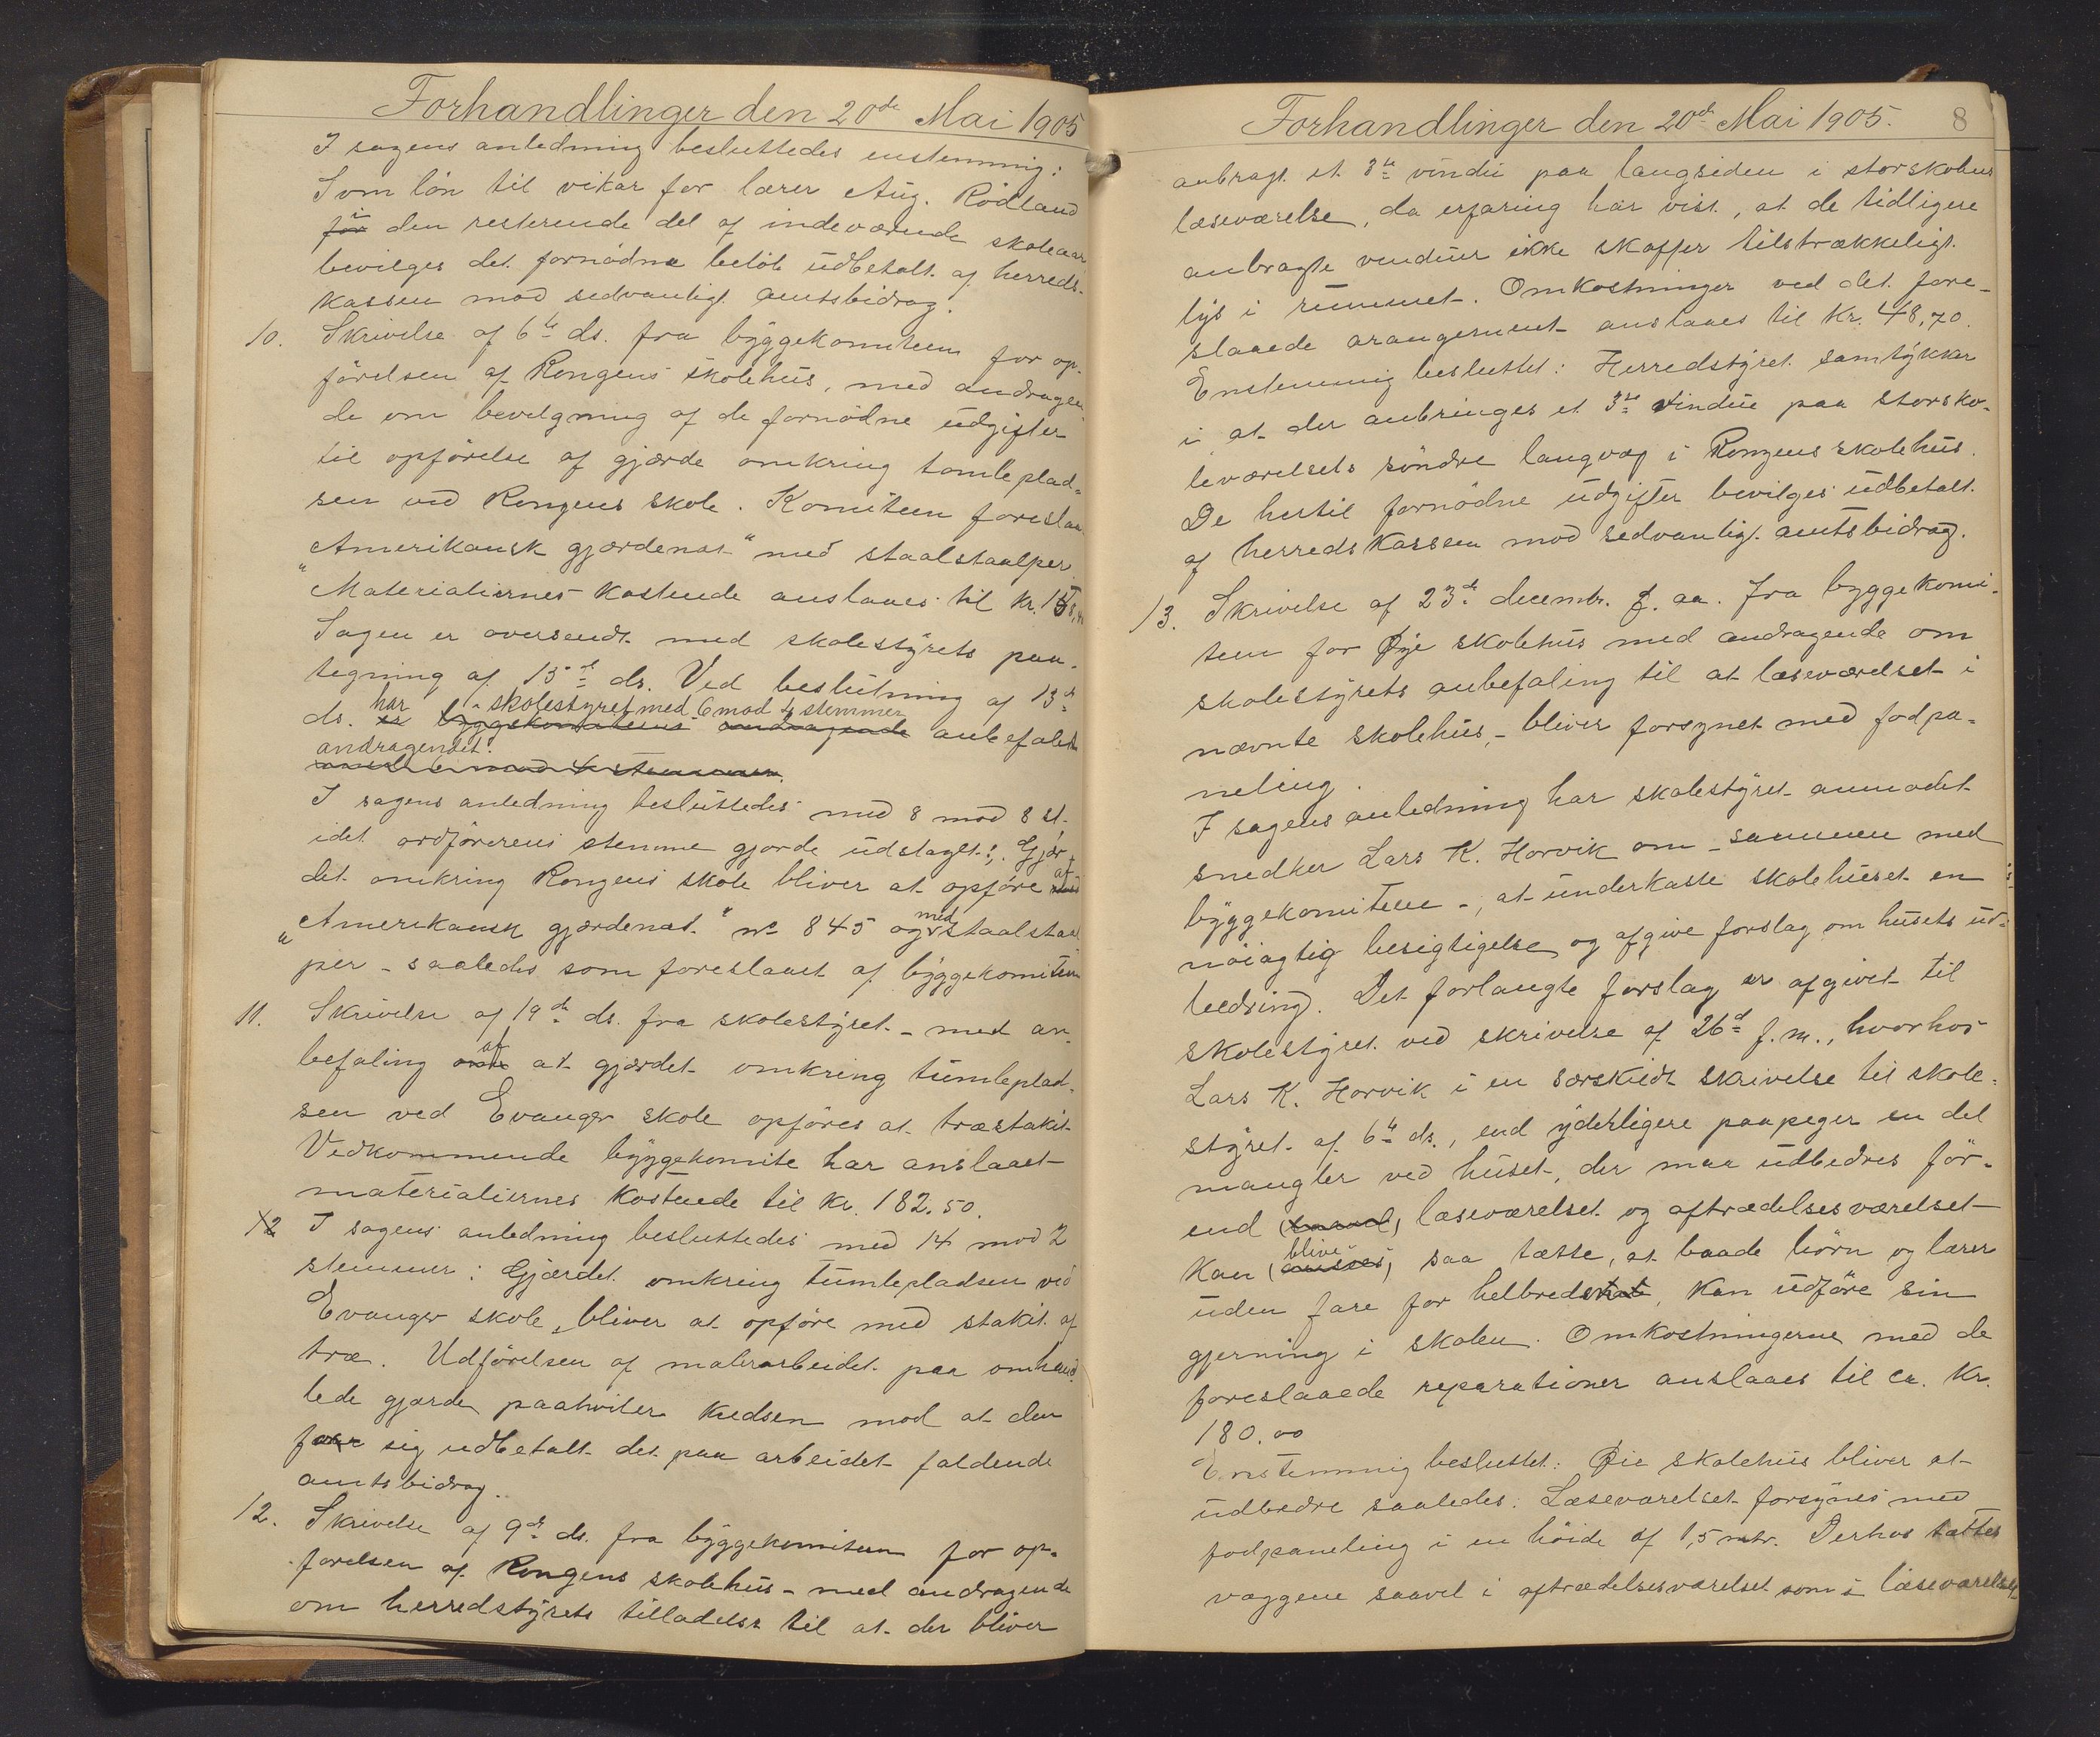 Forhandlinger den 20de Mai 1905
I sagens anledning besluttedes enstemmig:
Som løn til vikar for lærer Aug. Rödland
i den resterende del af indeværende skoleaar
bevilges det fornödne belöb udbetalt af herreds-
kassen mod sedvanligt amtsbidrag.
10. Skrivelse af 6te ds. fra byggekomiteen for op-
förelsen af Rongens skolehus, med andragen-
de om bevilgning af de fornödne udgifter
til opförelse af gjærde omkring tomteplad-
sen ved Rongens skole. Komiteen foreslaar
„Amerikansk gjærdenat“ med staalstaalper
Materialiernes kostende anslaaes til kr.
Sagen er oversendt med skolestyrets paa-
tegning af 15de ds. Ved beslutning af 13de
ds. har skolestyret med 6 mod 4 stemmer anbefalet
andragendet.
I sagens anledning besluttedes med 8 mod 8 st.
idet ordförerens stemme gjorde udslaget: Gjær-
det omkring Rongens skole bliver at opföre af
„Amerikansk gjærdenat“ no 845 og med staalstaal
per - saaledes som foreslaaet af byggekomiteen
11. Skrivelse af 19de ds. fra skolestyret - med an-
befaling af at gjærdet omkring tumleplad-
sen ved Evanger skole opföres at træstakit
Vedkommende byggekomite har anslaaet
materialiernes kostende til kr. 182.50.
I sagens anledning besluttedes med 14 mod 2
stemmer: Gjærdet omkring tumlepladsen ved
Evanger skole, bliver at opföre med stakit af
træ. Udförelsen af malerarbeidet paa omhand
lede gjærde paahviler kredsen mod at den
faar sig udbetalt det paa arbeidet faldende
amtsbidrag.
12. Skrivelse af 9de ds. fra byggekomiteen for op-
förelsen af Rongens skolehus - med andragende
om herredstyrets tilladelse til at der bliver
Forhandlinger den 20de Mai 1905. 8
anbragt et 3die vindu paa langsiden i storskolens
læseværelse, da erfaring har vist, at de tidligere
anbragte vinduer ikke skaffer tilstrækkeligt
lys i rummet. Omkostninger ved det fore-
slaaede arangement anslaaes til Kr. 48,70.
Enstemmig besluttet: Herredstyret samtykker
i at der anbringes et 3die vindue paa storsko-
leværelsets söndre langvæg i Rongens skolehus.
De hertil fornödne udgifter bevilges udbetalt
af herredskassen mod sedvanligt amtsbidrag.
13. Skrivelse af 23de decembr. f. aa. fra byggekomi-
teen for Øye skolehus med andragende om
skolestyrets anbefaling til at læseværelset i
nævnte skolehus, - bliver forsynet med fodpa-
neling.
I sagens anledning har skolestyret anmodet
snedker Lars K. Horvik om - sammen med
byggekomiteen -, at underkaste skolehuset en
nöiagtig besigtigelse og afgive forslag om husets ud-
bedring. Det forlangte forslag er afgivet til
skolestyret ved skrivelse af 26de f. m., hvorhos
Lars K. Horvik i en særskildt skrivelse til skole-
styret af 6te ds., end yderligere paapeger en del
mangler ved huset, der maa udbedres för-
end læseværelset og aftrædelsesværelset
kan blive saa tætte, at baade börn og lærer
uden fare for helbredet, kan udföre sin
gjerning i skolen. Omkostningerne med de
foreslaaede reparationer anslaaes til ca. Kr.
180.00
Enstemmig besluttet: Øie skolehus bliver at
udbedre saaledes: Læseværelset forsynes med
fodpaneling i en höide af 1,5 mtr. Derhos tættes
væggene saavel i aftrædelsesværelset som i læseværelset